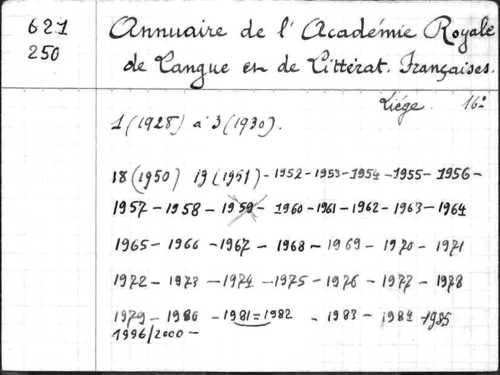 621
250
Annuaire de l'Académie Royale
de Langue et de Littérat. Françaises.
Liége. 16º
1 (1928) à 3 (1930).
18 (1950) 19 (1951) - 1952 - 1953 - 1954 - 1955 - 1956 -
1957 - 1958 - 1959 - 1960 - 1961 - 1962 - 1963 - 1964
1965 - 1966 - 1967 - 1968 - 1969 - 1970 - 1971
1972 - 1973 - 1974 - 1975 - 1976 - 1977 - 1978
1979 - 1980 - 1981 = 1982 - 1983 - 1984 - 1985
1996/2000 -